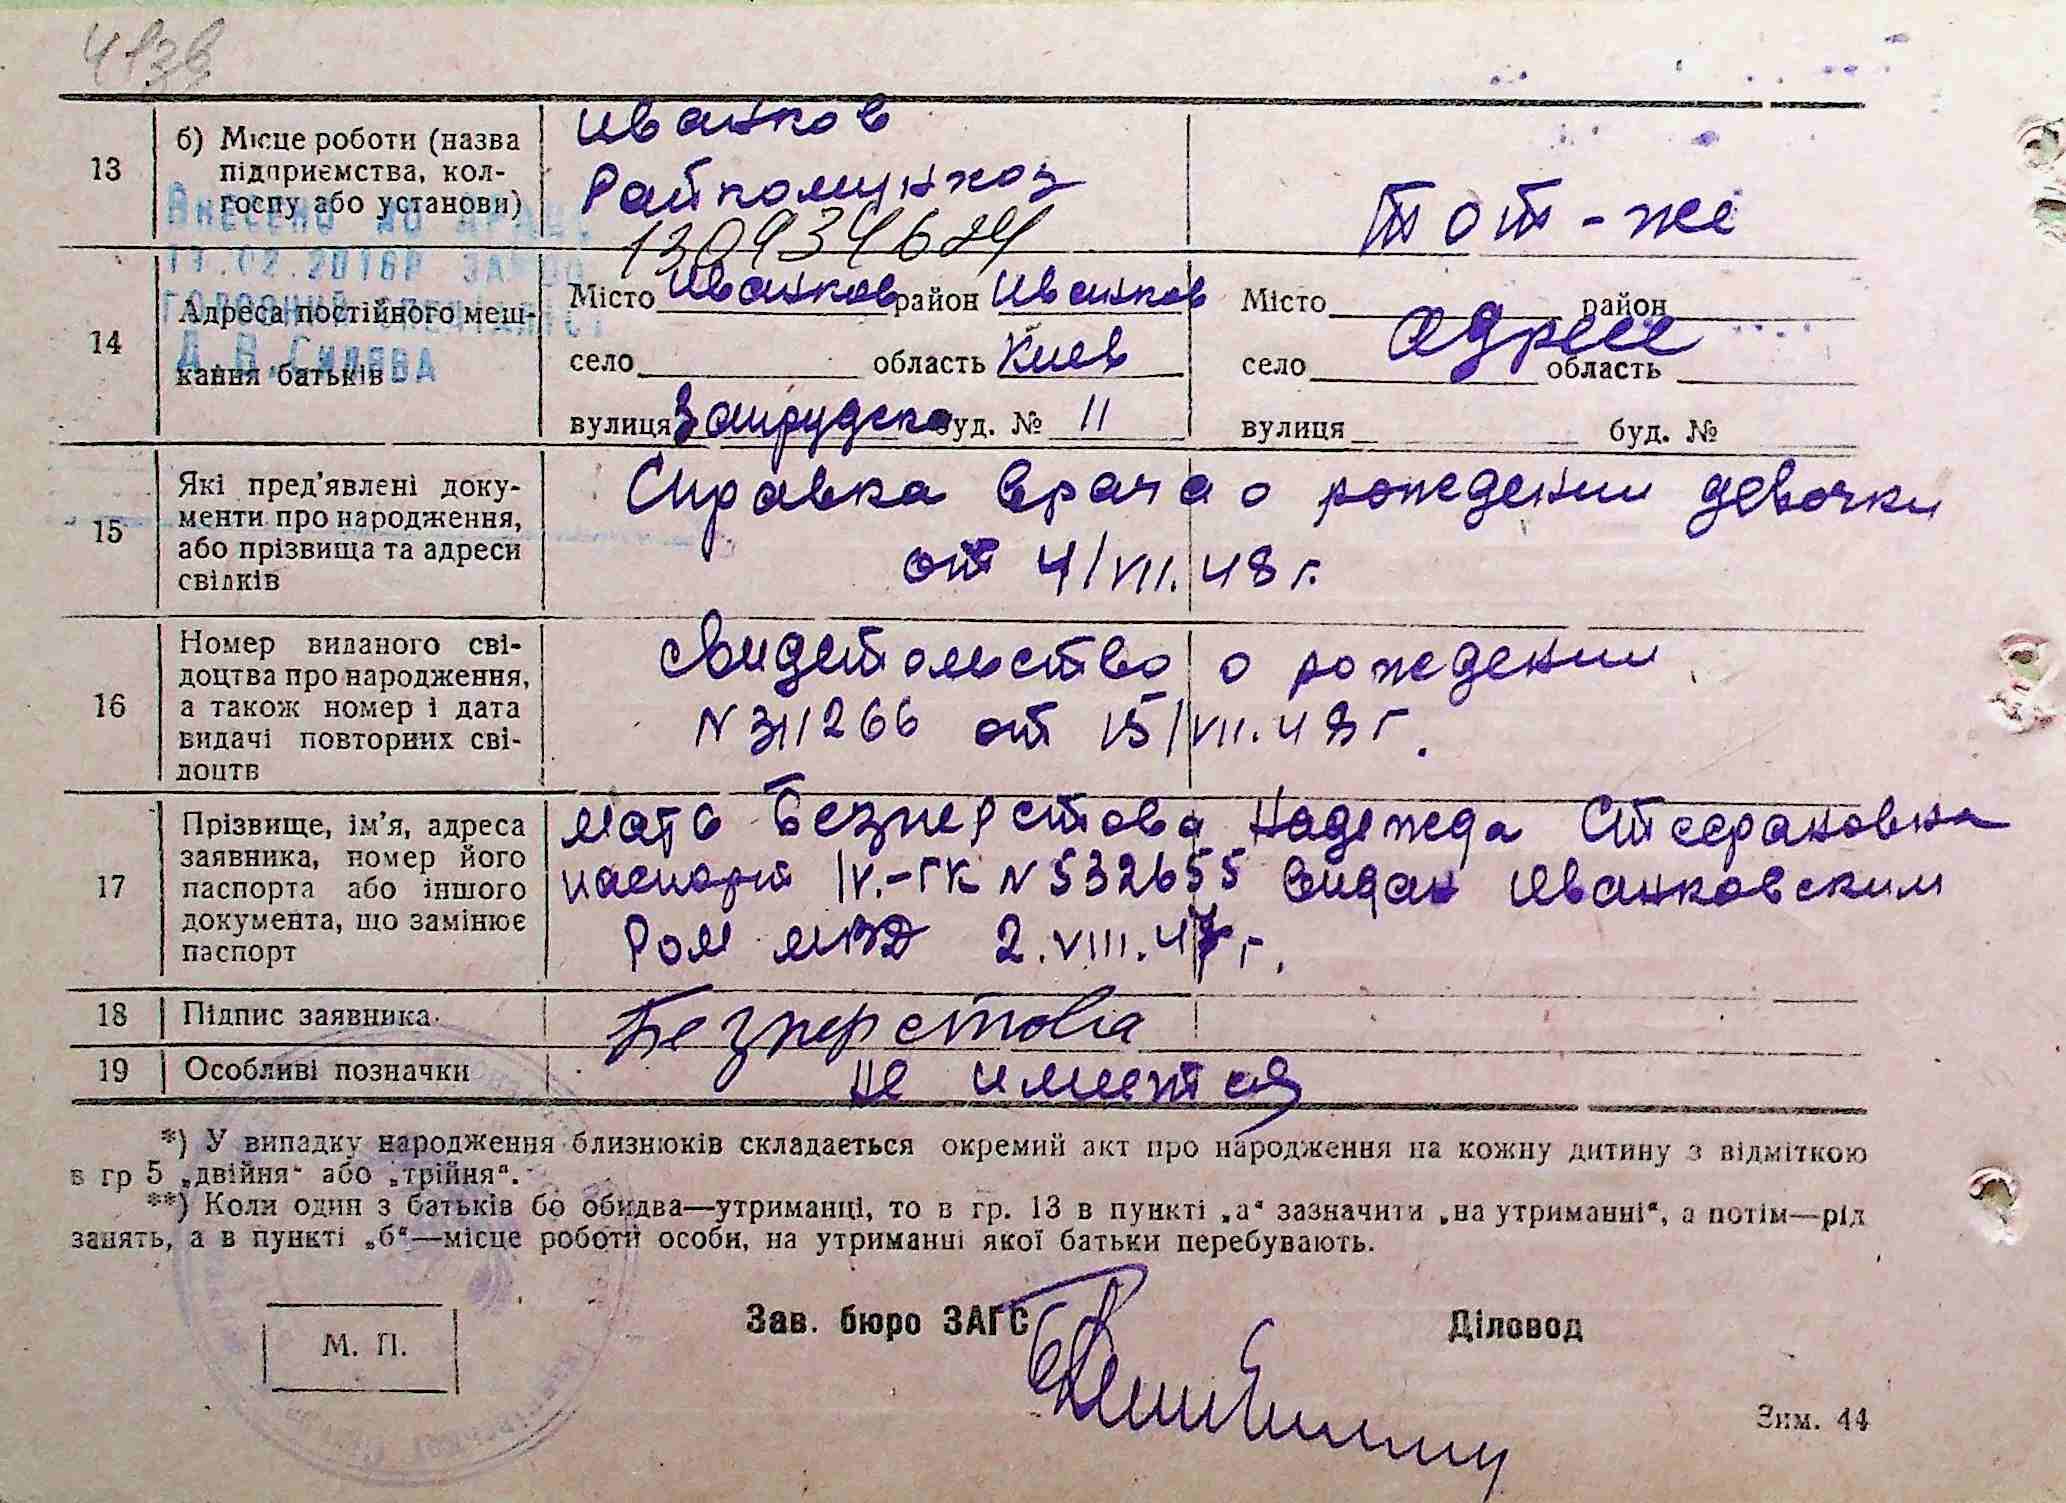 413в
13
б) Місце роботи (назва
підприємства, кол-
госпу або установи)
Иванков
Райкомунхоз
1309346
тот-же
Внесено до ДРАЦС
11.02.2016р
головний спеціаліст
Д.В.Силява
14
Адреса постійного меш-
кання батьків
Місто Иванков район Иванков
село область Киев
вулиця буд. № 11
Місто район
адрес
село область
вулиця буд. №
15
Які пред'явлені доку-
менти про народження,
або прізвища та адреси
свідків
Справка врача о рождении девочки
от 4/VII.48г.
16
Номер виданого сві-
доцтва про народження,
а також номер і дата
видачі повторних сві-
доцтв
свидетольство о рождении
N 311266 от 15/VII.48г.
17
Прізвище, ім'я, адреса
заявника, номер його
паспорта або іншого
документа, що замінює
паспорт
мать Безперстова Надежда Стефановна
паспорт IV.-ГК N 532655 видан Иванковским
РОМ МВД 2.VIII.47г.
18
Підпис заявника
Безперстова
19
Особливі позначки
не имеется
*) У випадку народження близнюків складається окремий акт про народження на кожну дитину з відміткою
в гр 5 „двійня“ або „трійня“.
**) Коли один з батьків бо обидва—утриманці, то в гр. 13 в пункті „а“ зазначити „на утриманні“, а потім—рід
занять, а в пункті „б“—місце роботи особи, на утриманні якої батьки перебувають.
М. П.
Зав. бюро ЗАГС
Діловод
Зим. 44